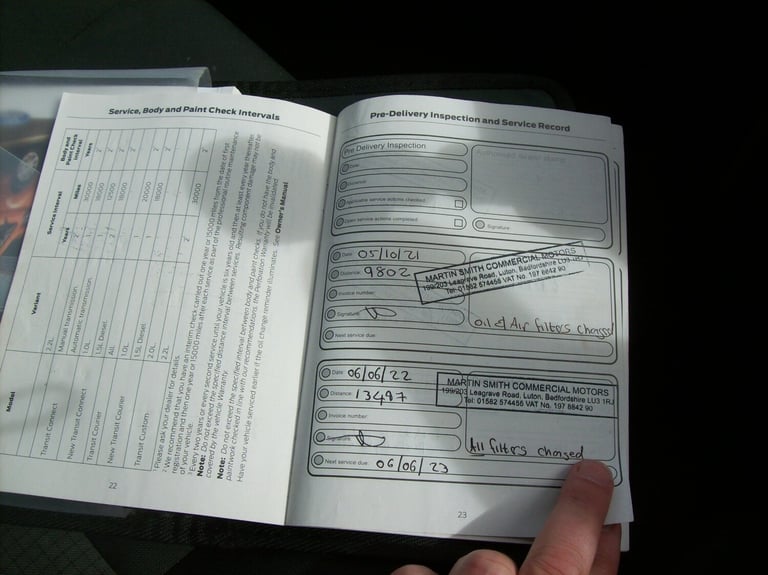 Service, Body and Paint Check Intervals
Model
Variant
Service Interval
Body and Paint Check Interval
Years
Miles
Years
Transit Connect
2.2L
Manual transmission
New Transit Connect
Automatic transmission
Transit Courier
1.0L
1.5L Diesel
New Transit Courier
All
1.0L
Transit Custom
1.5L Diesel
20000
2.0L
18000
2.2L
30000
Please ask your dealer for details.
We recommend that you have an interim check carried out one year or 15000 miles from the date of first
registration and then one year or 15000 miles after each service as part of the professional routine maintenance
of your vehicle.
Note: Do not exceed the specified distance interval between services. Resulting component damage may not be
covered by the vehicle Warranty.
Note: Do not exceed the specified interval between body and paint checks. If you do not have the body and
paintwork checked in line with our recommendations, the Perforation Warranty will be invalidated.
Have your vehicle serviced earlier if the oil change reminder illuminates. See Owner's Manual.
22
Pre-Delivery Inspection and Service Record
Pre Delivery Inspection
Date:
Distance:
Applicable service actions checked:
Open service actions completed:
Authorised dealer stamp
Signature:
Date: 05/10/21
Distance: 9802
Invoice number:
Signature:
Next service due:
MARTIN SMITH COMMERCIAL MOTORS
199/203 Leagrave Road, Luton, Bedfordshire LU3
Tel: 01582 574455 VAT No. 197 6842 90
Oil & Air filters changed
Date: 06/06/22
Distance: 13497
Invoice number:
Signature:
Next service due: 06/06/23
MARTIN SMITH COMMERCIAL MOTORS
199/203 Leagrave Road, Luton, Bedfordshire LU3 1RJ
Tel: 01582 574455 VAT No. 197 6842 90
All filters changed
23